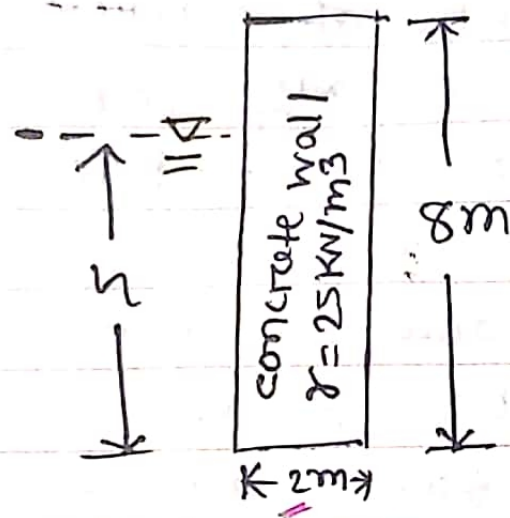 concrete wall
γ=25KN/m3
8m
h
2m